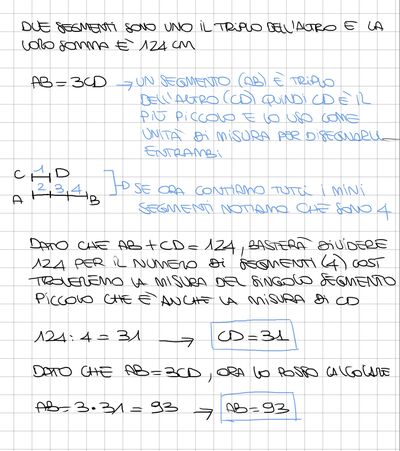 DUE SEGMENTI SONO UNO IL TRIPLO DELL'ALTRO E LA
LORO SOMMA È 124 CM
AB = 3CD → UN SEGMENTO (AB) È TRIPLO
DELL'ALTRO (CD) QUINDI CD È IL
PIÙ PICCOLO E LO USO COME
UNITÀ DI MISURA PER DISEGNARLI
ENTRAMBI
C 1 D
A 2 3 4 B
→ SE ORA CONTIAMO TUTTI I MINI
SEGMENTI NOTIAMO CHE SONO 4
DATO CHE AB + CD = 124, BASTERÀ DIVIDERE
124 PER IL NUMERO DI SEGMENTI (4) COSÌ
TROVEREMO LA MISURA DEL SINGOLO SEGMENTO
PICCOLO CHE È ANCHE LA MISURA DI CD
124 : 4 = 31 → CD = 31
DATO CHE AB = 3CD, ORA LO POSSO CALCOLARE
AB = 3 · 31 = 93 → AB = 93